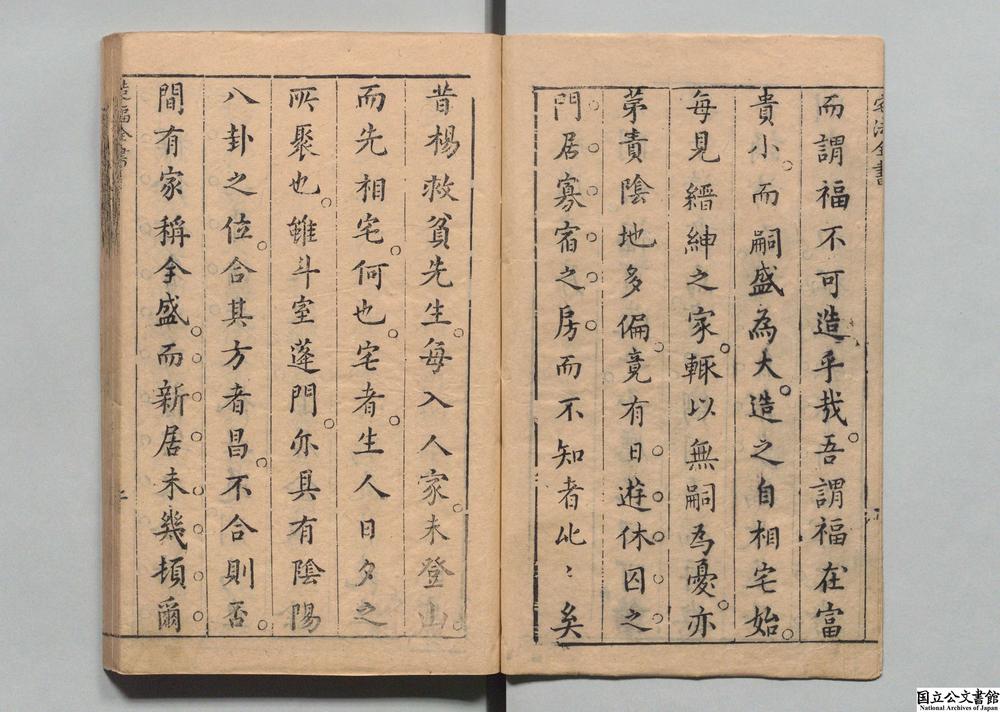 而謂福不可造乎哉。吾謂福在富
貴小。而嗣盛為大。造之自相宅始。
每見縉紳之家。輙以無嗣為憂。亦
苐責陰地多偏。竟有日遊休囚之
門居寡宿之房而不知者比〻矣
昔楊救貧先生。每入人家。未登山。
而先相宅。何也。宅者。生人日夕之
所聚也。雖斗室蓬門。亦具有陰陽
八卦之位。合其方者昌。不合則否。
間有家稱全盛。而新居未幾頓爾
国立公文書館
National Archives of Japan